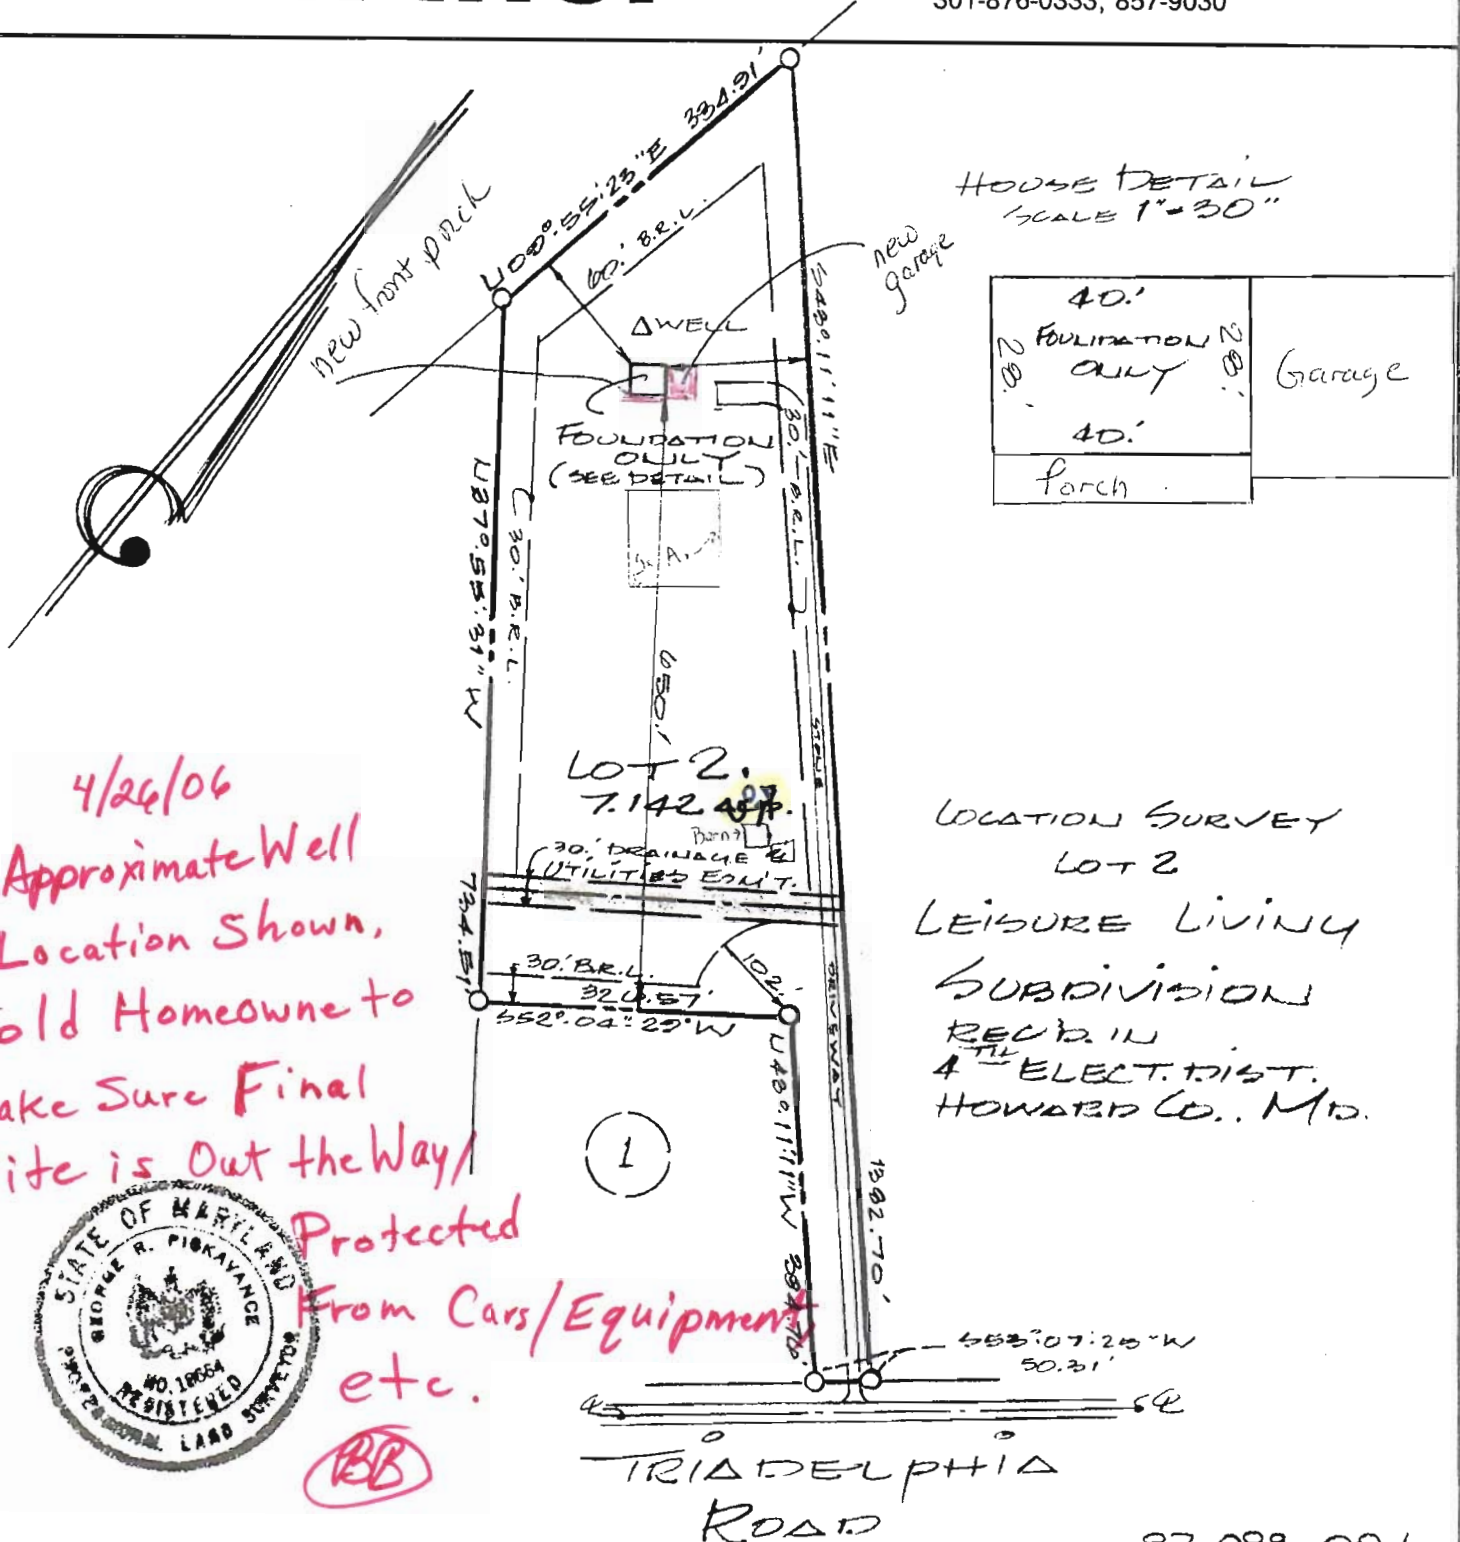 301-876-0333, 857-9030
334.91'
N00°.55'.23"E
60.' B.R.L.
new front porch
new
garage
HOUSE DETAIL
SCALE 1"=30"
40.'
FOUNDATION
ONLY
28.'
28.'
40.'
Garage
Porch
△WELL
FOUNDATION
ONLY
(SEE DETAIL)
S.A.
30.' B.R.L.
30.' B.R.L.
N87°.55'.31"W
734.51'
S480.11'11"E
650.'
STONE
DRIVEWAY
LOT 2.
7.142
Barn→
30.' DRAINAGE &
UTILITIES ESM'T.
30.' B.R.L.
102.'
S52°.04".29"W
N480.11'11"W
1382.70'
1
S53°07:25"W
50.31'
TRIADELPHIA
ROAD
LOCATION SURVEY
LOT 2
LEISURE LIVING
SUBDIVISION
REC'D. IN
4TH ELECT. DIST.
HOWARD CO., MD.
4/26/06
Approximate Well
Location Shown,
old Homeowne to
ake Sure Final
ite is Out the Way/
Protected
From Cars/Equipment,
etc.
BB
STATE OF MARYLAND
GEORGE R. PISKAVANCE
NO. 18654
REGISTERED
PROFESSIONAL LAND SURVEYOR